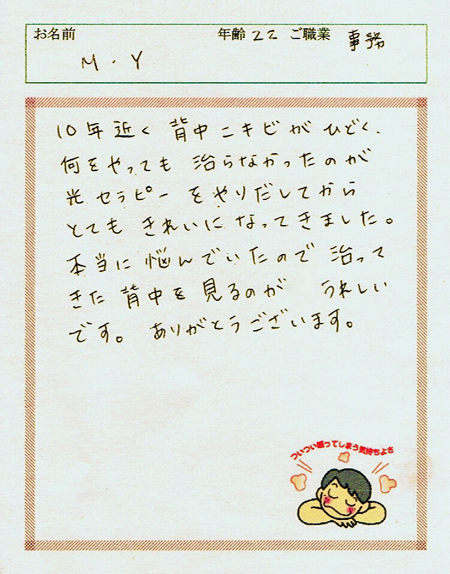 お名前 M・Y 年齢 22 ご職業 事務
10年近く 背中ニキビが ひどく、
何をやっても 治らなかったのが
光セラピーをやりだしてから
とても きれいに なってきました。
本当に 悩んでいたので 治って
きた 背中を 見るのが うれしい
です。 ありがとうございます。
ついつい眠ってしまう気持ちよさ